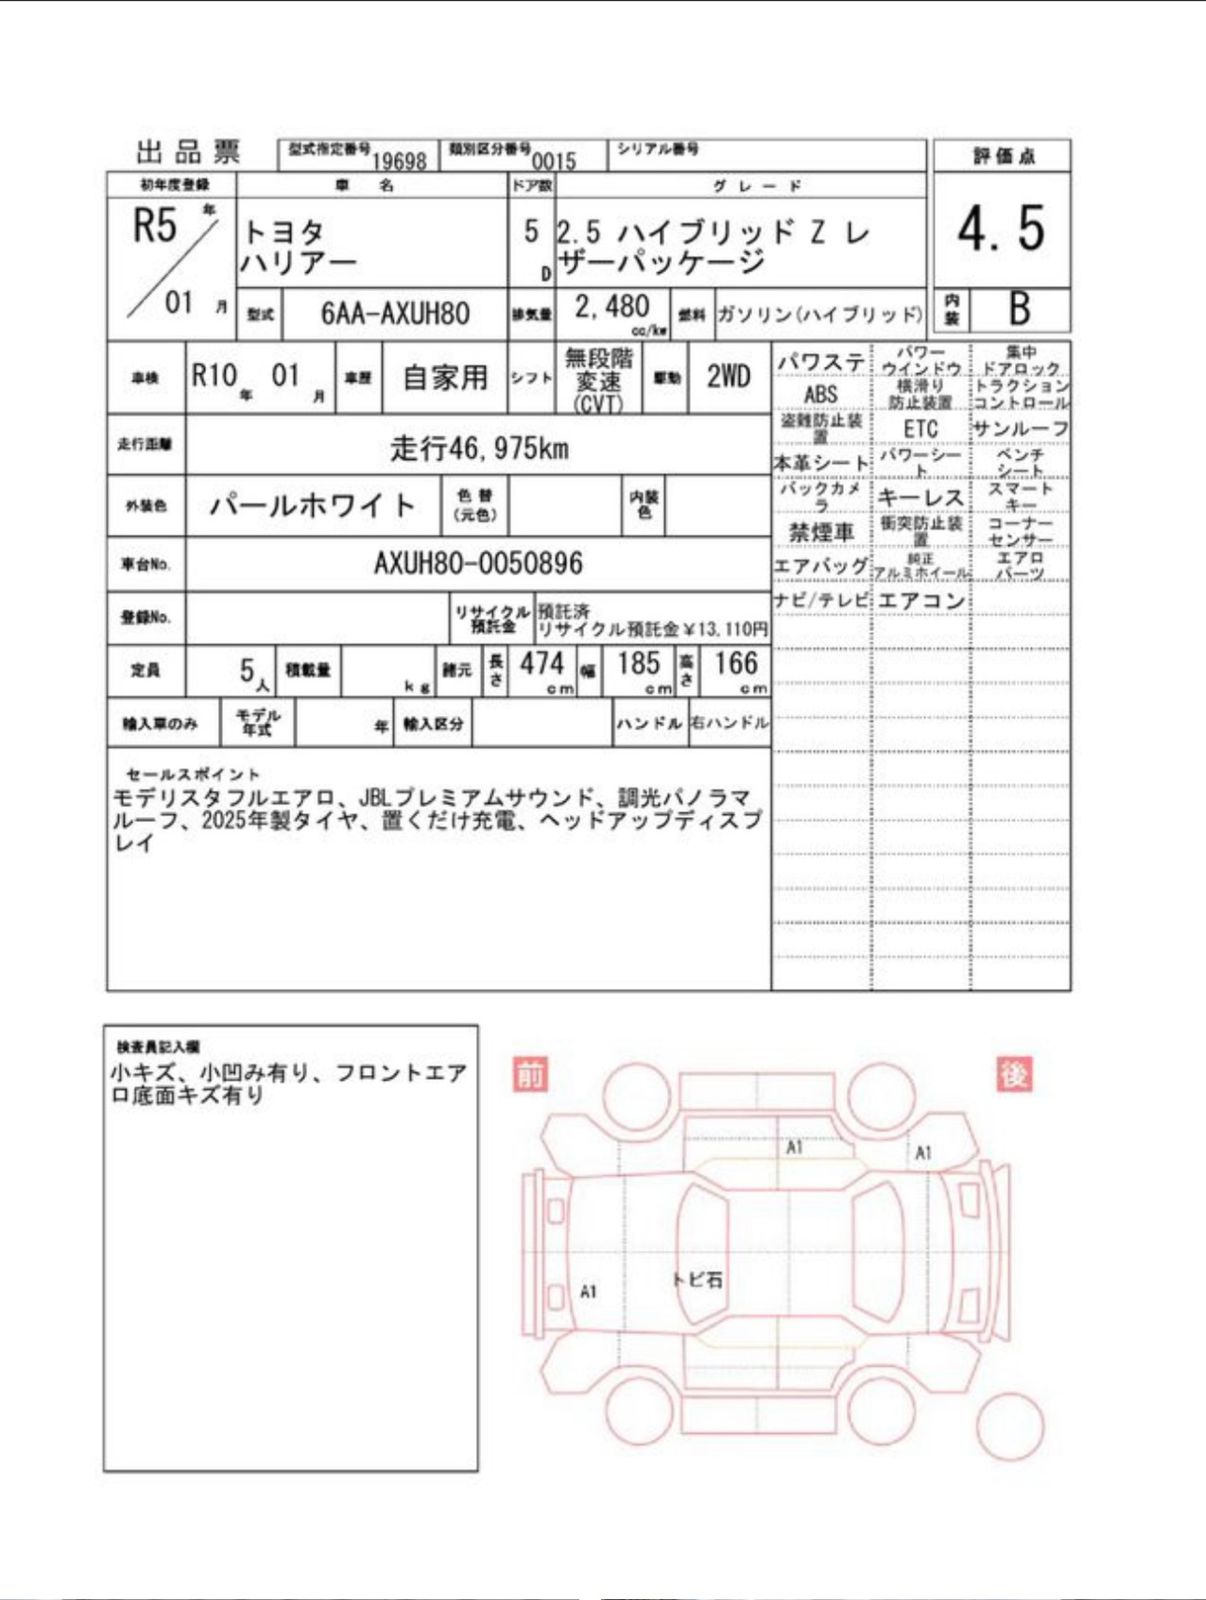 出品票
型式指定番号 19698
類別区分番号 0015
シリアル番号
評価点
4.5
内装
B
初年度登録
R5 年
01 月
車 名
トヨタ
ハリアー
ドア数
5
D
グ レ ー ド
2.5 ハイブリッド Z レ
ザーパッケージ
型式
6AA-AXUH80
排気量
2,480
cc/kw
燃料
ガソリン(ハイブリッド)
車検
R10 年 01 月
車歴
自家用
シフト
無段階
変速
(CVT)
駆動
2WD
走行距離
走行46,975km
外装色
パールホワイト
色替
(元色)
内装
色
車台No.
AXUH80-0050896
登録No.
リサイクル
預託金
預託済
リサイクル預託金￥13,110円
定員
5人
積載量
kg
諸元
長さ
474
cm
幅
185
cm
高さ
166
cm
輸入車のみ
モデル
年式
年
輸入区分
ハンドル
右ハンドル
パワステ
パワー
ウインドウ
集中
ドアロック
ABS
横滑り
防止装置
トラクション
コントロール
盗難防止装
置
ETC
サンルーフ
本革シート
パワーシー
ト
ベンチ
シート
バックカメ
ラ
キーレス
スマート
キー
禁煙車
衝突防止装
置
コーナー
センサー
エアバッグ
純正
アルミホイール
エアロ
パーツ
ナビ/テレビ
エアコン
セールスポイント
モデリスタフルエアロ、JBLプレミアムサウンド、調光パノラマ
ルーフ、2025年製タイヤ、置くだけ充電、ヘッドアップディスプ
レイ
検査員記入欄
小キズ、小凹み有り、フロントエア
ロ底面キズ有り
前
後
A1
A1
トビ石
A1